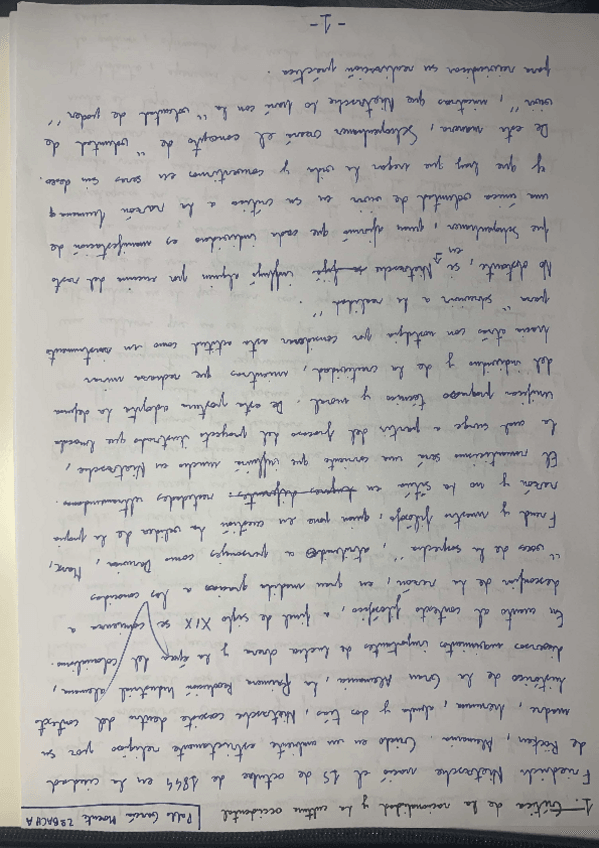 Pablo García Morente 2ºBACH A
1. Crítica de la racionalidad y la cultura occidental
Friedrich Nietzsche nació el 15 de octubre de 1844 en la ciudad
de Röcken, Alemania. Criado en un ambiente estrictamente religioso por su
madre, hermana, abuela y dos tías, Nietzsche coexiste dentro del contexto
histórico de la Gran Alemania, la Primera Revolución Industrial alemana,
diversos movimientos importantes de lucha obrera y la época del colonialismo.
En cuanto al contexto filosófico, a final de siglo XIX se comienza a
desconfiar de la razón, en gran medida gracias a los conocidos
"voces de la sospecha", atribuido a personajes como Darwin, Marx,
Freud y nuestro filósofo, quien pone en cuestión la validez de la propia
razón y no la sitúa en realidades ultramundanas.
El romanticismo será una corriente que influirá mucho en Nietzsche,
la cual surge a partir del fracaso del proyecto ilustrado que buscaba
unificar progreso técnico y moral. De esta postura adopta la defensa
del individuo y de la creatividad, mientras que rechaza mirar
hacia atrás con nostalgia por considerar esta actitud como un
para "sobrevivir a la realidad".
No obstante, si en Nietzsche influyó alguien por encima del resto
fue Schopenhauer, quien afirmó que cada individuo es manifestación de
una única voluntad de vivir en su crítica a la razón humana
y que hay que negar la vida y convertirnos en seres sin deseo.
De esta manera, Schopenhauer creará el concepto de "voluntad de
vivir", mientras que Nietzsche lo hará con la "voluntad de poder"
para reivindicar su realización práctica.
- 1 -